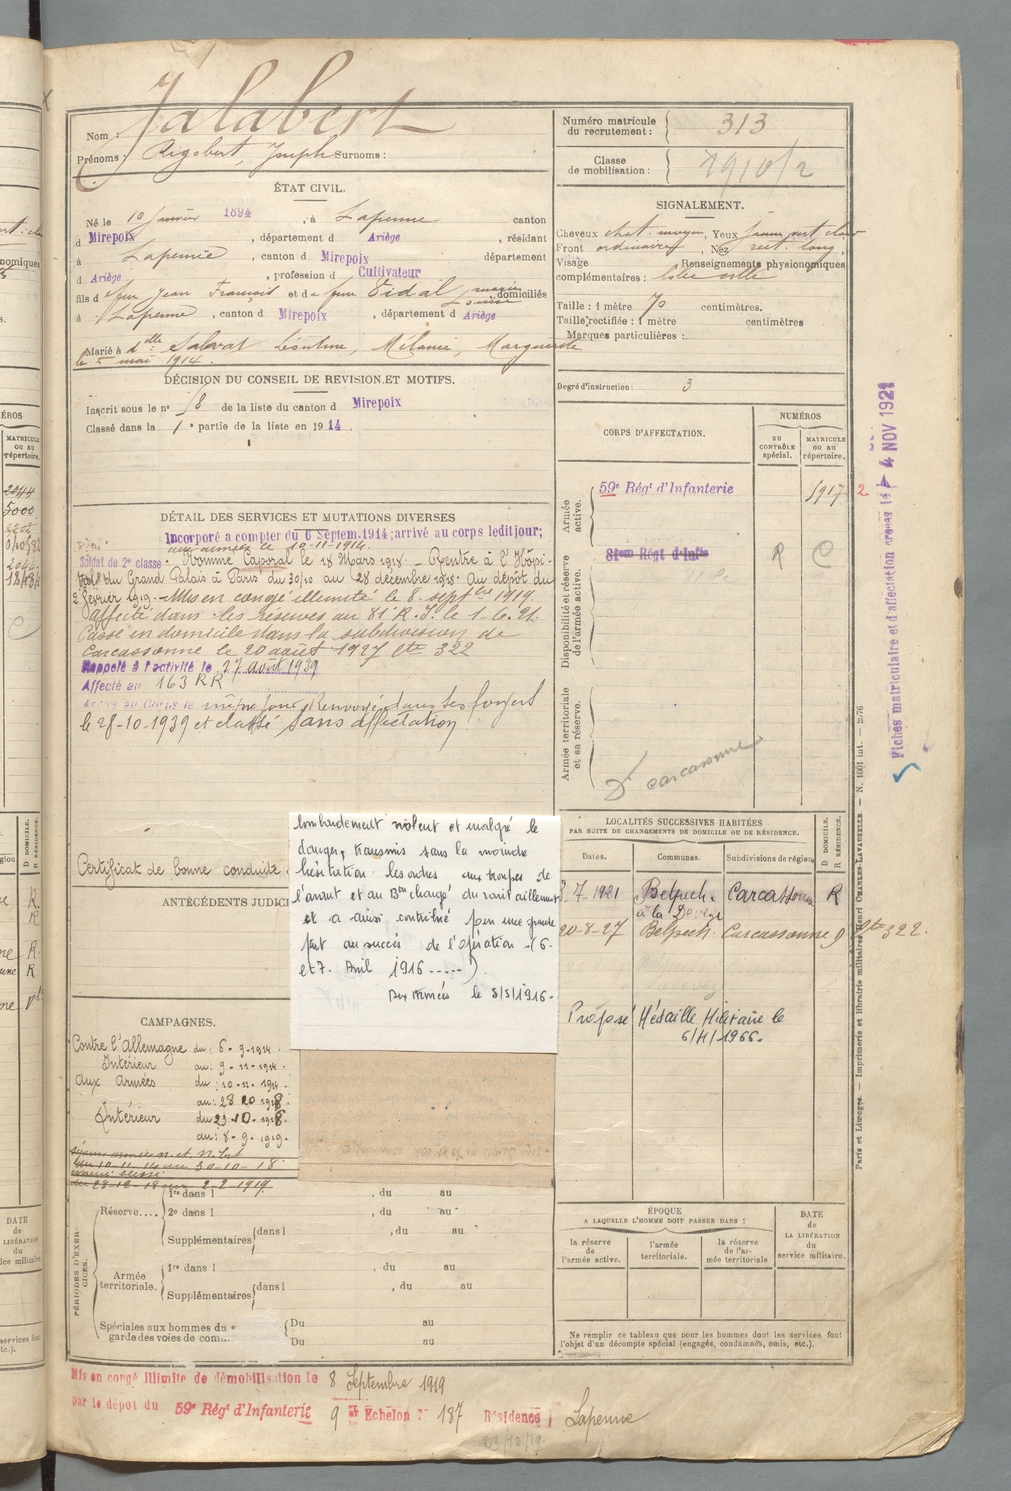 Nom : Jalabert
Prénoms : Rigobert, Joseph Surnoms :
Numéro matricule
du recrutement : 313
Classe
de mobilisation : 1910/2
ÉTAT CIVIL.
Né le 10 janvier 1894, à Lapenne canton
d Mirepoix, département d Ariège, résidant
à Lapenne, canton d Mirepoix département
d Ariège, profession d Cultivateur
fils d feu Jean François et de feue Vidal Marie Louise, domiciliés
à Lapenne, canton d Mirepoix, département d Ariège
Marié à dlle Salvat Léontine, Mélanie, Marguerite
le 5 mai 1914.
SIGNALEMENT.
Cheveux chat. moyen, Yeux jaune vert clair
Front ordinaire, Nez rect. long
Visage Renseignements physionomiques
complémentaires :
Taille : 1 mètre 70 centimètres.
Taille rectifiée : 1 mètre centimètres
Marques particulières :
Degré d'instruction : 3
DÉCISION DU CONSEIL DE REVISION ET MOTIFS.
Inscrit sous le n° 18 de la liste du canton d Mirepoix
Classé dans la 1e partie de la liste en 1914.
CORPS D'AFFECTATION.
NUMÉROS
AU
CONTRÔLE
spécial.
MATRICULE
OU AU
répertoire.
Armée
active.
59e Régt d'Infanterie 5917 2
Disponibilité et réserve
de l'armée active.
81eme Régt d'Infie R C
Armée territoriale
et sa réserve.
Dt Carcassonne
DÉTAIL DES SERVICES ET MUTATIONS DIVERSES
Incorporé à compter du 6 Septem. 1914; arrivé au corps ledit jour;
aux armées le 10-11-1914.
Soldat de 2e classe. Nommé Caporal le 18 Mars 1918. Rentré à l'Hôpi-
tal du Grand Palais à Paris du 30/10 au 28 décembre 1918. Au dépôt du
2 février 1919. Mis en congé illimité le 8 septbre 1919.
affecté dans les réserves au 81e R.I. le 1-6-21.
Passé en domicile dans la subdivision de
Carcassonne le 20 août 1927 Lte 322
Rappelé à l'activité le 27 août 1939
Affecté au 163 RR
Arrivé au Corps le même jour. Renvoyé dans ses foyers
le 28-10-1939 et classé sans affectation
Certificat de bonne conduite
ANTÉCÉDENTS JUDICI
bombardement violent et malgré le
danger, transmis sans la moindre
hésitation les ordres aux troupes de
l'avant et au Bon chargé du ravitaillement
et a ainsi contribué pour une grande
part au succès de l'opération (6
et 7 Avril 1916 -----).
Aux Armées le 5/5/1916.
LOCALITÉS SUCCESSIVES HABITÉES
PAR SUITE DE CHANGEMENTS DE DOMICILE OU DE RÉSIDENCE.
Dates. Communes. Subdivisions de région
D DOMICILE.
R RÉSIDENCE.
3-7-1921 Belpech Carcassonne R
à la Devèze
20-8-27 Belpech Carcassonne D Lte 322.
Proposé Médaille Militaire le
CAMPAGNES.
Contre l'Allemagne du : 6-9-1914
Intérieur au : 9-11-1914
aux Armées du : 10-11-1914
au : 28 10 1918
Intérieur du 29-10-1918
au : 8-9-1919.
du 10-11-14 au 30-10-18
du 28-12-18 au 2-2-1919
PÉRIODES D'EXERCICES.
Réserve....
1re dans l , du au
2e dans l , du au
Supplémentaires dans l , du au
Armée
territoriale.
1re dans l , du au
Supplémentaires dans l , du au
Spéciales aux hommes du
garde des voies de com...
Du au
Du au
ÉPOQUE
A LAQUELLE L'HOMME DOIT PASSER DANS :
la réserve
de
l'armée active.
l'armée
territoriale.
la réserve
de l'ar-
mée territoriale
DATE
de
LA LIBÉRATION
du
service militaire.
Ne remplir ce tableau que pour les hommes dont les services font
l'objet d'un décompte spécial (engagés, condamnés, omis, etc.).
Mis en congé illimité de démobilisation le 8 Septembre 1919
Par le dépôt du 59e Régt d'Infanterie 9 Echelon N° 187 Résidence Lapenne
23/10/19.
Fiches matriculaire et d'affectation 4 NOV 1921
Paris et Limoges. — Imprimerie et librairie militaires Henri CHARLES-LAVAUZELLE. — N. 1001 int.